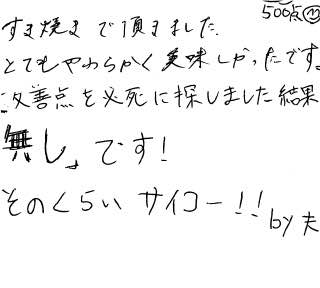 500点
すき焼きで頂きました.
とてもやわらかく美味しかったです。
改善点を必死に探しました結果
無し」です!
そのくらいサイコー!!
by夫